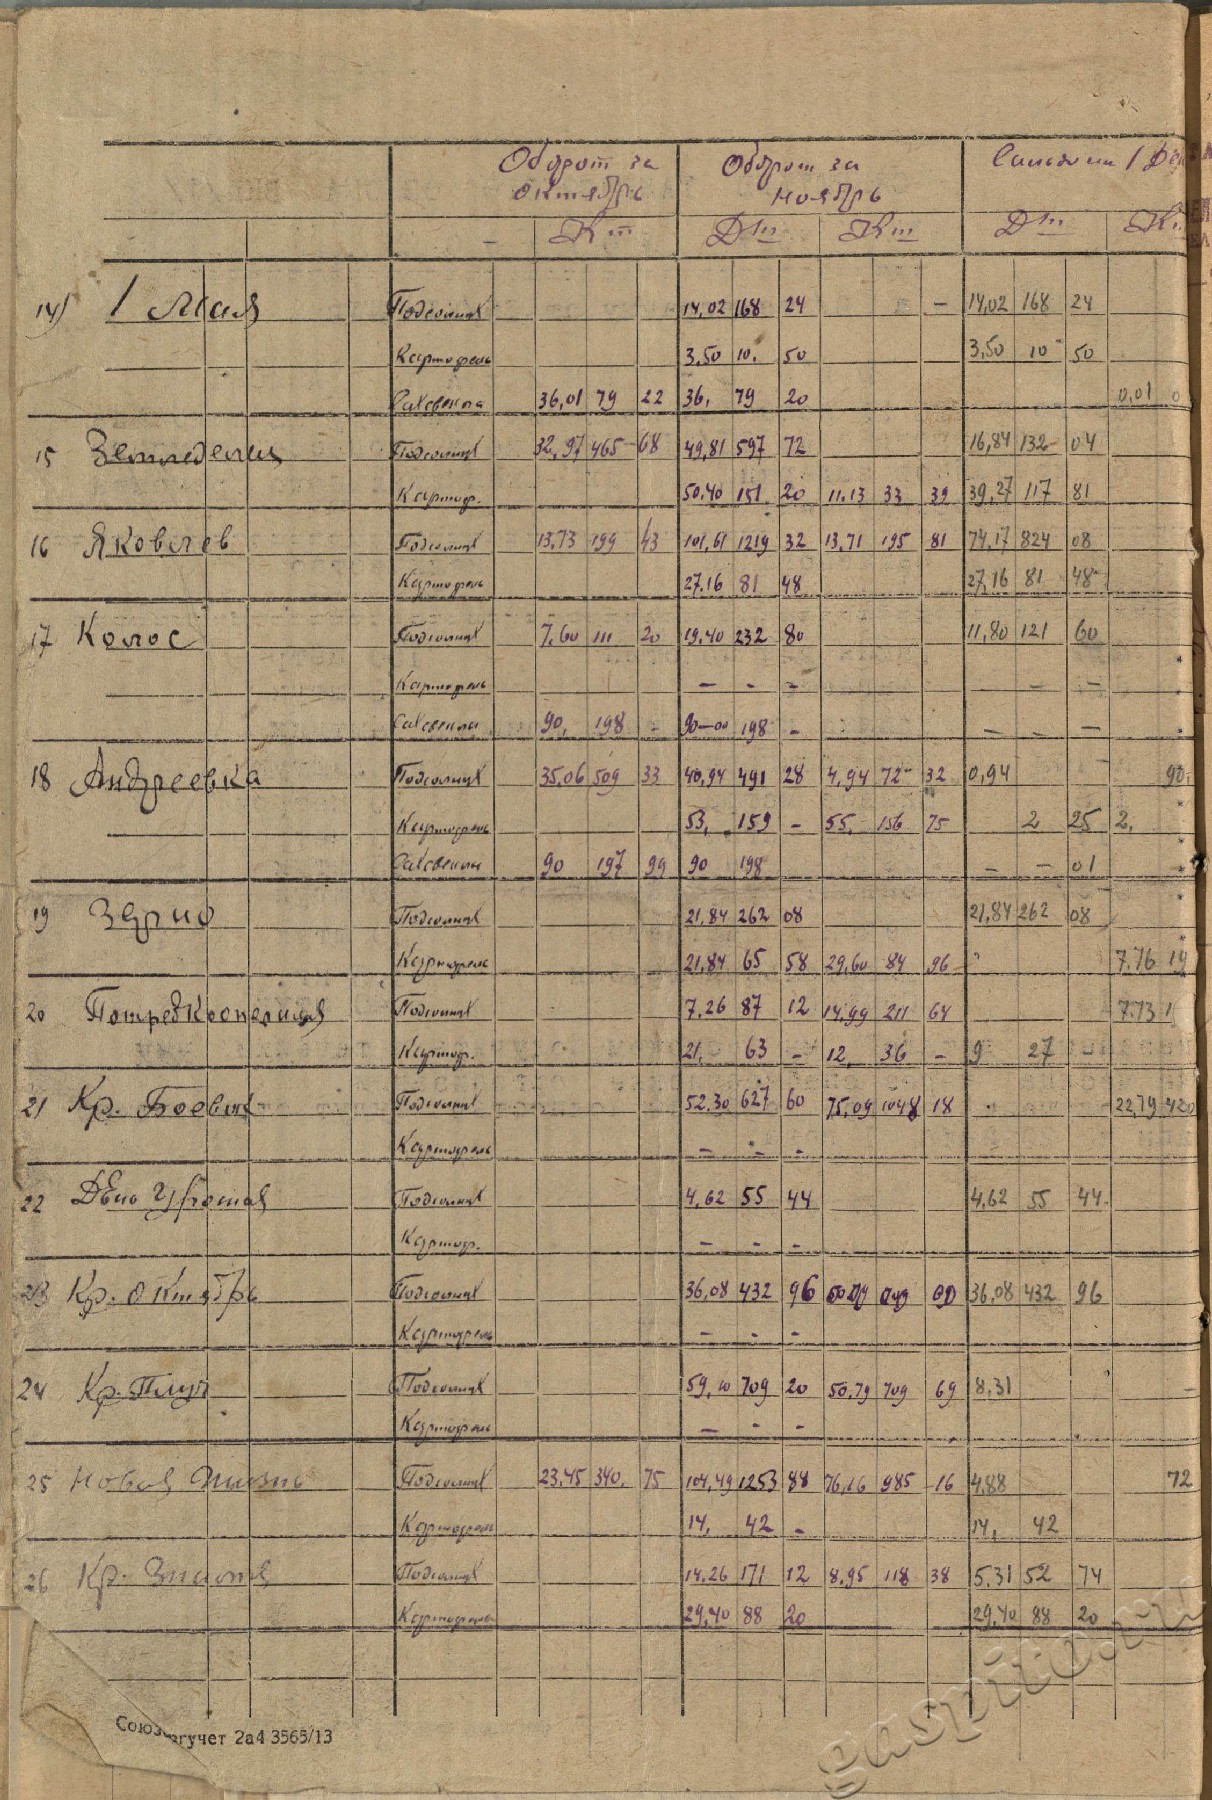 Оборот за Оборот за Сальдо на 1 Дек
октябрь ноябрь
Кт Дт Кт Дт Кт
14) 1 Мая Подсолнух 14,02 168 24 — 14,02 168 24
Картофель 3,50 10. 50 3,50 10 50
Сахсвекла 36,01 79 22 36, 79 20 0,01 0
15 Земледелец Подсолнух 32,97 465 68 49,81 597 72 16,84 132 04
Картоф. 50,40 151 20 11.13 33 39 39,27 117 81
16 Яковлев Подсолнух 13,73 199 43 101,61 1219 32 13,71 195 81 74,17 824 08
Картофель 27.16 81 48 27,16 81 48
17 Колос Подсолнух 7,60 111 20 19,40 232 80 11,80 121 60
Картофель — - - — —
Сахсвекла 90, 198 - 90—00 198 - — — —
18 Андреевка Подсолнух 35,06 509 33 40,94 491 28 4,94 72 32 0,94 90
Картофель 53, 159 - 55, 156 75 2 25 2,
Сахсвекла 90 197 99 90 198 — — 01
19 Зерно Подсолнух 21,84 262 08 21,84 262 08
Картофель 21,84 65 58 29,60 84 96 7.76 19
20 Потребкооперация Подсолнух 7.26 87 12 14,99 211 64 7.73 1
Картоф. 21, 63 - 12, 36 - 9 27
21 Кр. Боевик Подсолнух 52.30 627 60 75,09 1048 18 22,79 420
Картофель — - -
22 День Урожая Подсолнух 4,62 55 44 4,62 55 44
Картоф. — - -
23 Кр. Октябрь Подсолнух 36,08 432 96 36,08 432 96
Картофель — - -
24 Кр. Плуг Подсолнух 59,10 709 20 50,79 709 69 8,31 —
Картофель — - -
25 Новая Жизнь Подсолнух 23,45 340, 75 104,49 1253 88 76,16 985 16 4,88 72
Картофель 14, 42 - 14, 42
26 Кр. Знамя Подсолнух 14.26 171 12 8,95 118 38 5,31 52 74
Картофель 29,40 88 20 29,40 88 20
Союз гучет 2а4 3565/13
gaspito.ru